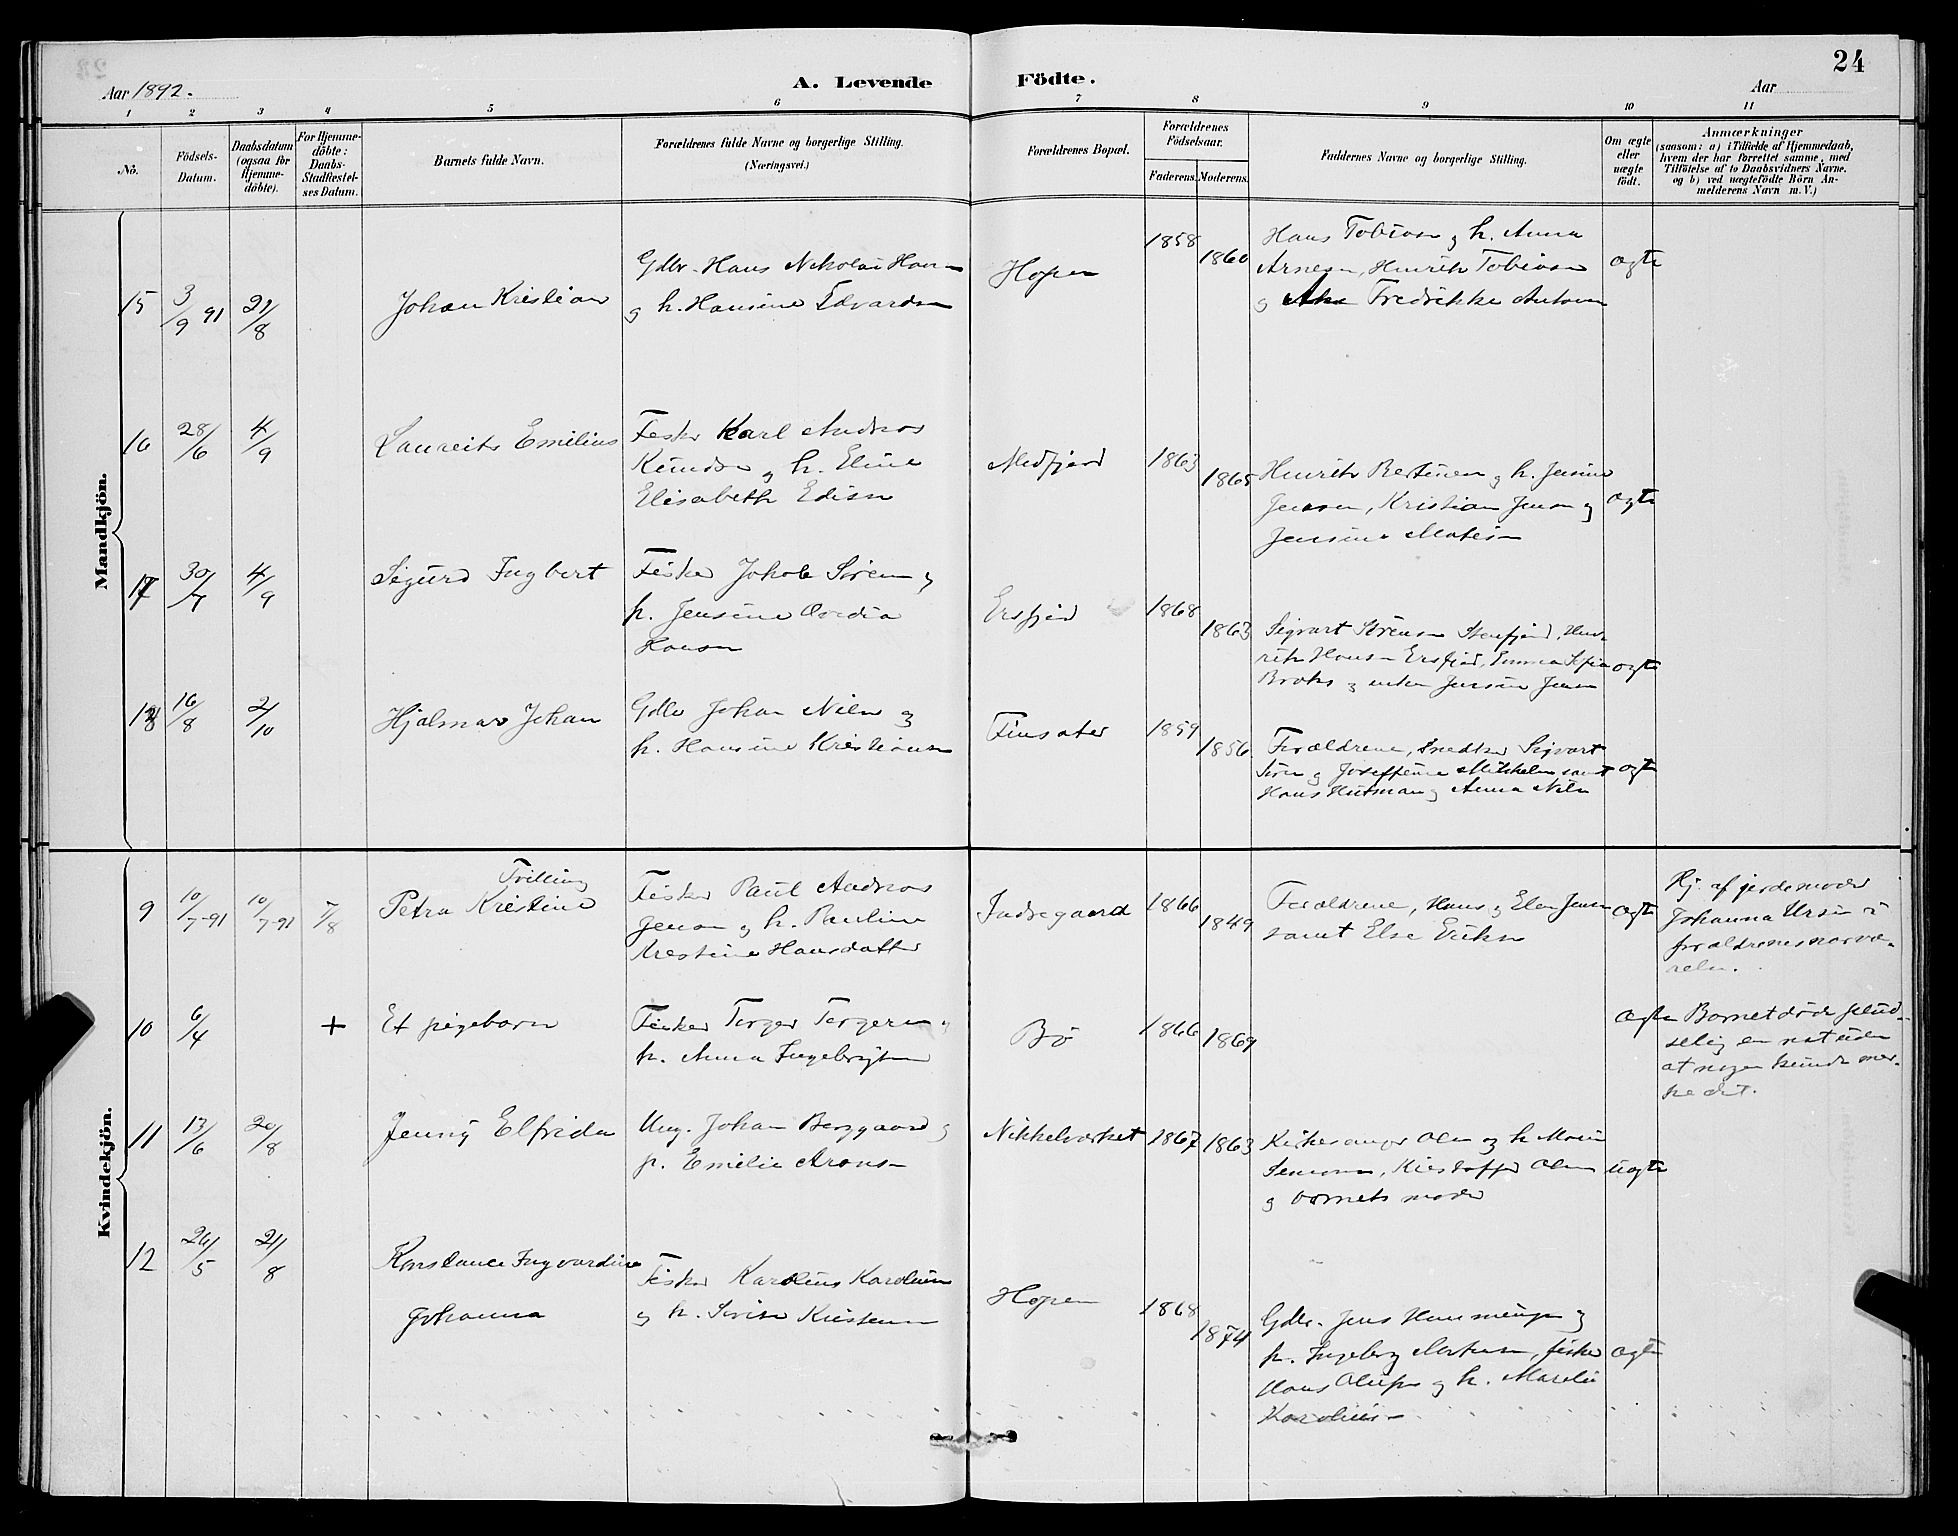 24
Aar 1892.
A. Levende Födte.
Aar
1 2 3 4 5 6 7 8 9 10 11
No.
Födsels-
Datum.
Daabsdatum
(ogsaa for
Hjemme-
döbte).
For Hjemme-
döbte:
Daabs-
Stadfæstel-
ses Datum.
Barnets fulde Navn.
Forældrenes fulde Navne og borgerlige Stilling.
(Næringsvei.)
Forældrenes Bopæl.
Forældrenes
Födselsaar.
Faderens. Moderens.
Faddernes Navne og borgerlige Stilling.
Om ægte
eller
uægte
födt.
Anmærkninger
(saasom: a) i Tilfælde af Hjemmedaab,
hvem der har forrettet samme, med
Tilföielse af to Daabsvidners Navne.
og b) ved uægtefödte Börn An-
melderens Navn m. V.)
Mandkjön.
15
3/9 91
21/8
Johan Kristian
Gdbr. Hans Nikolai Hansen
og h. Hansine Edvardsen
Hopen
1858
1860
Hans Tobiasen og h. Anna
Arnesen, Henrik Tobiasen
og Fredrikke Antonsen
ægte
16
28/6
4/9
Laurits Emilius
Fisker Karl Andreas
Knudsen og h. Eline
Elisabeth Edisen
Medfjord
1863
1865
Henrik Bertinsen og h. Jensine
Jensen, Kristian Jensen og
Jensine
ægte
17
30/7
4/9
Sigurd Ingbert
Fisker Jakob Sörensen og
h. Jensine Ovidia
Hansen
Ersfjord
1868
1863
Sigvart Sörensen Stenfjord, Hen-
rik Hansen Ersfjord, Emma Sofia
Broks og enken Jensine Jensen
ægte
18
16/8
2/10
Hjalmar Johan
Gdbr Johan Nilsen og
h. Hansine Kristiansen
Finsæter
1859
1856
Forældrene, Snedker Sigvart
Sörensen og Josefine Mikkelsen samt
Hans Hutman og Anna Nilsen
ægte
Kvindekjön.
9
10/7-91
10/7-91
7/8
Trilling
Petra Kristine
Fisker Paul Andreas
Jenson og h. Pauline
Kristine Hansdatter
Indregaard
1866
1849
Forældrene, Hans og Elen Jensen
samt Else Eriksen
ægte
Hj. af jordemoder
Johanna Ursin i
forældrenes nærvæ-
relse.
10
6/4
+
Et pigebarn
Fisker Torger Torgersen og
h. Anna Ingebrigtsen
Bö
1866
1869
ægte
Barnet döde plud-
selig en nat uden
at nogen kunde mær-
ke det.
11
13/6
20/8
Jenny Elfrida
Ung. Johan Berggaard og
p. Emilie Aronsen
Nikkelværket
1867
1863
Kirkesanger Olsen og h. Marie
Simonsen, Kristoffer Olsen
og barnets moder
uægte
12
24/5
21/8
Konstance Ingvardine
Johanna
Fisker Karolius Karoliusen
og h. Sörine Kristensen
Hopen
1868
1874
Gdbr. Jens Hemmingsen og
h. Ingeborg Mortensen, fisker
Hans Olufsen og h. Marelie
Karoliusen
ægte